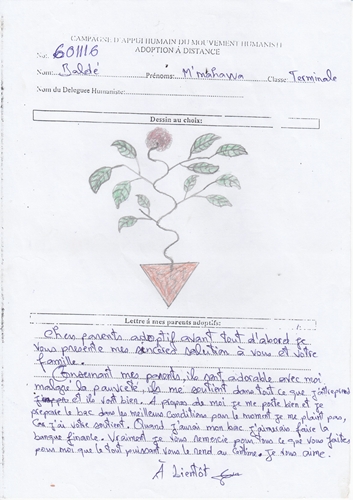 CAMPAGNE D'APPUI HUMAIN DU MOUVEMENT HUMANISTE
ADOPTION A DISTANCE
No: 601116
Nom: Baldé Prénoms: M'mahawa Classe: Terminale
Nom du Deleguee Humaniste:
Dessin au choix:
Lettre à mes parents adoptifs:
Chers parents adoptif avant tout d'abord je
vous présente mes sincères salution à vous et votre
famille.
Concernant mes parents, ils sont adorable avec moi
malgré la pauvreté, ils me soutient dans tout ce que j'entreprend
et ils vont bien. A propos de moi je me porte bien et je
prépare le bac dans les meilleurs conditions pour le moment je me plaint pas,
Car j'ai votre soutient. Quand j'aurai mon bac j'aimerais faire la
banque finance. Vraiment je vous remercie pour tous ce que vous faites
pour moi que le tout puissant vous le rend au Centime. Je vous aime.
À Bientôt